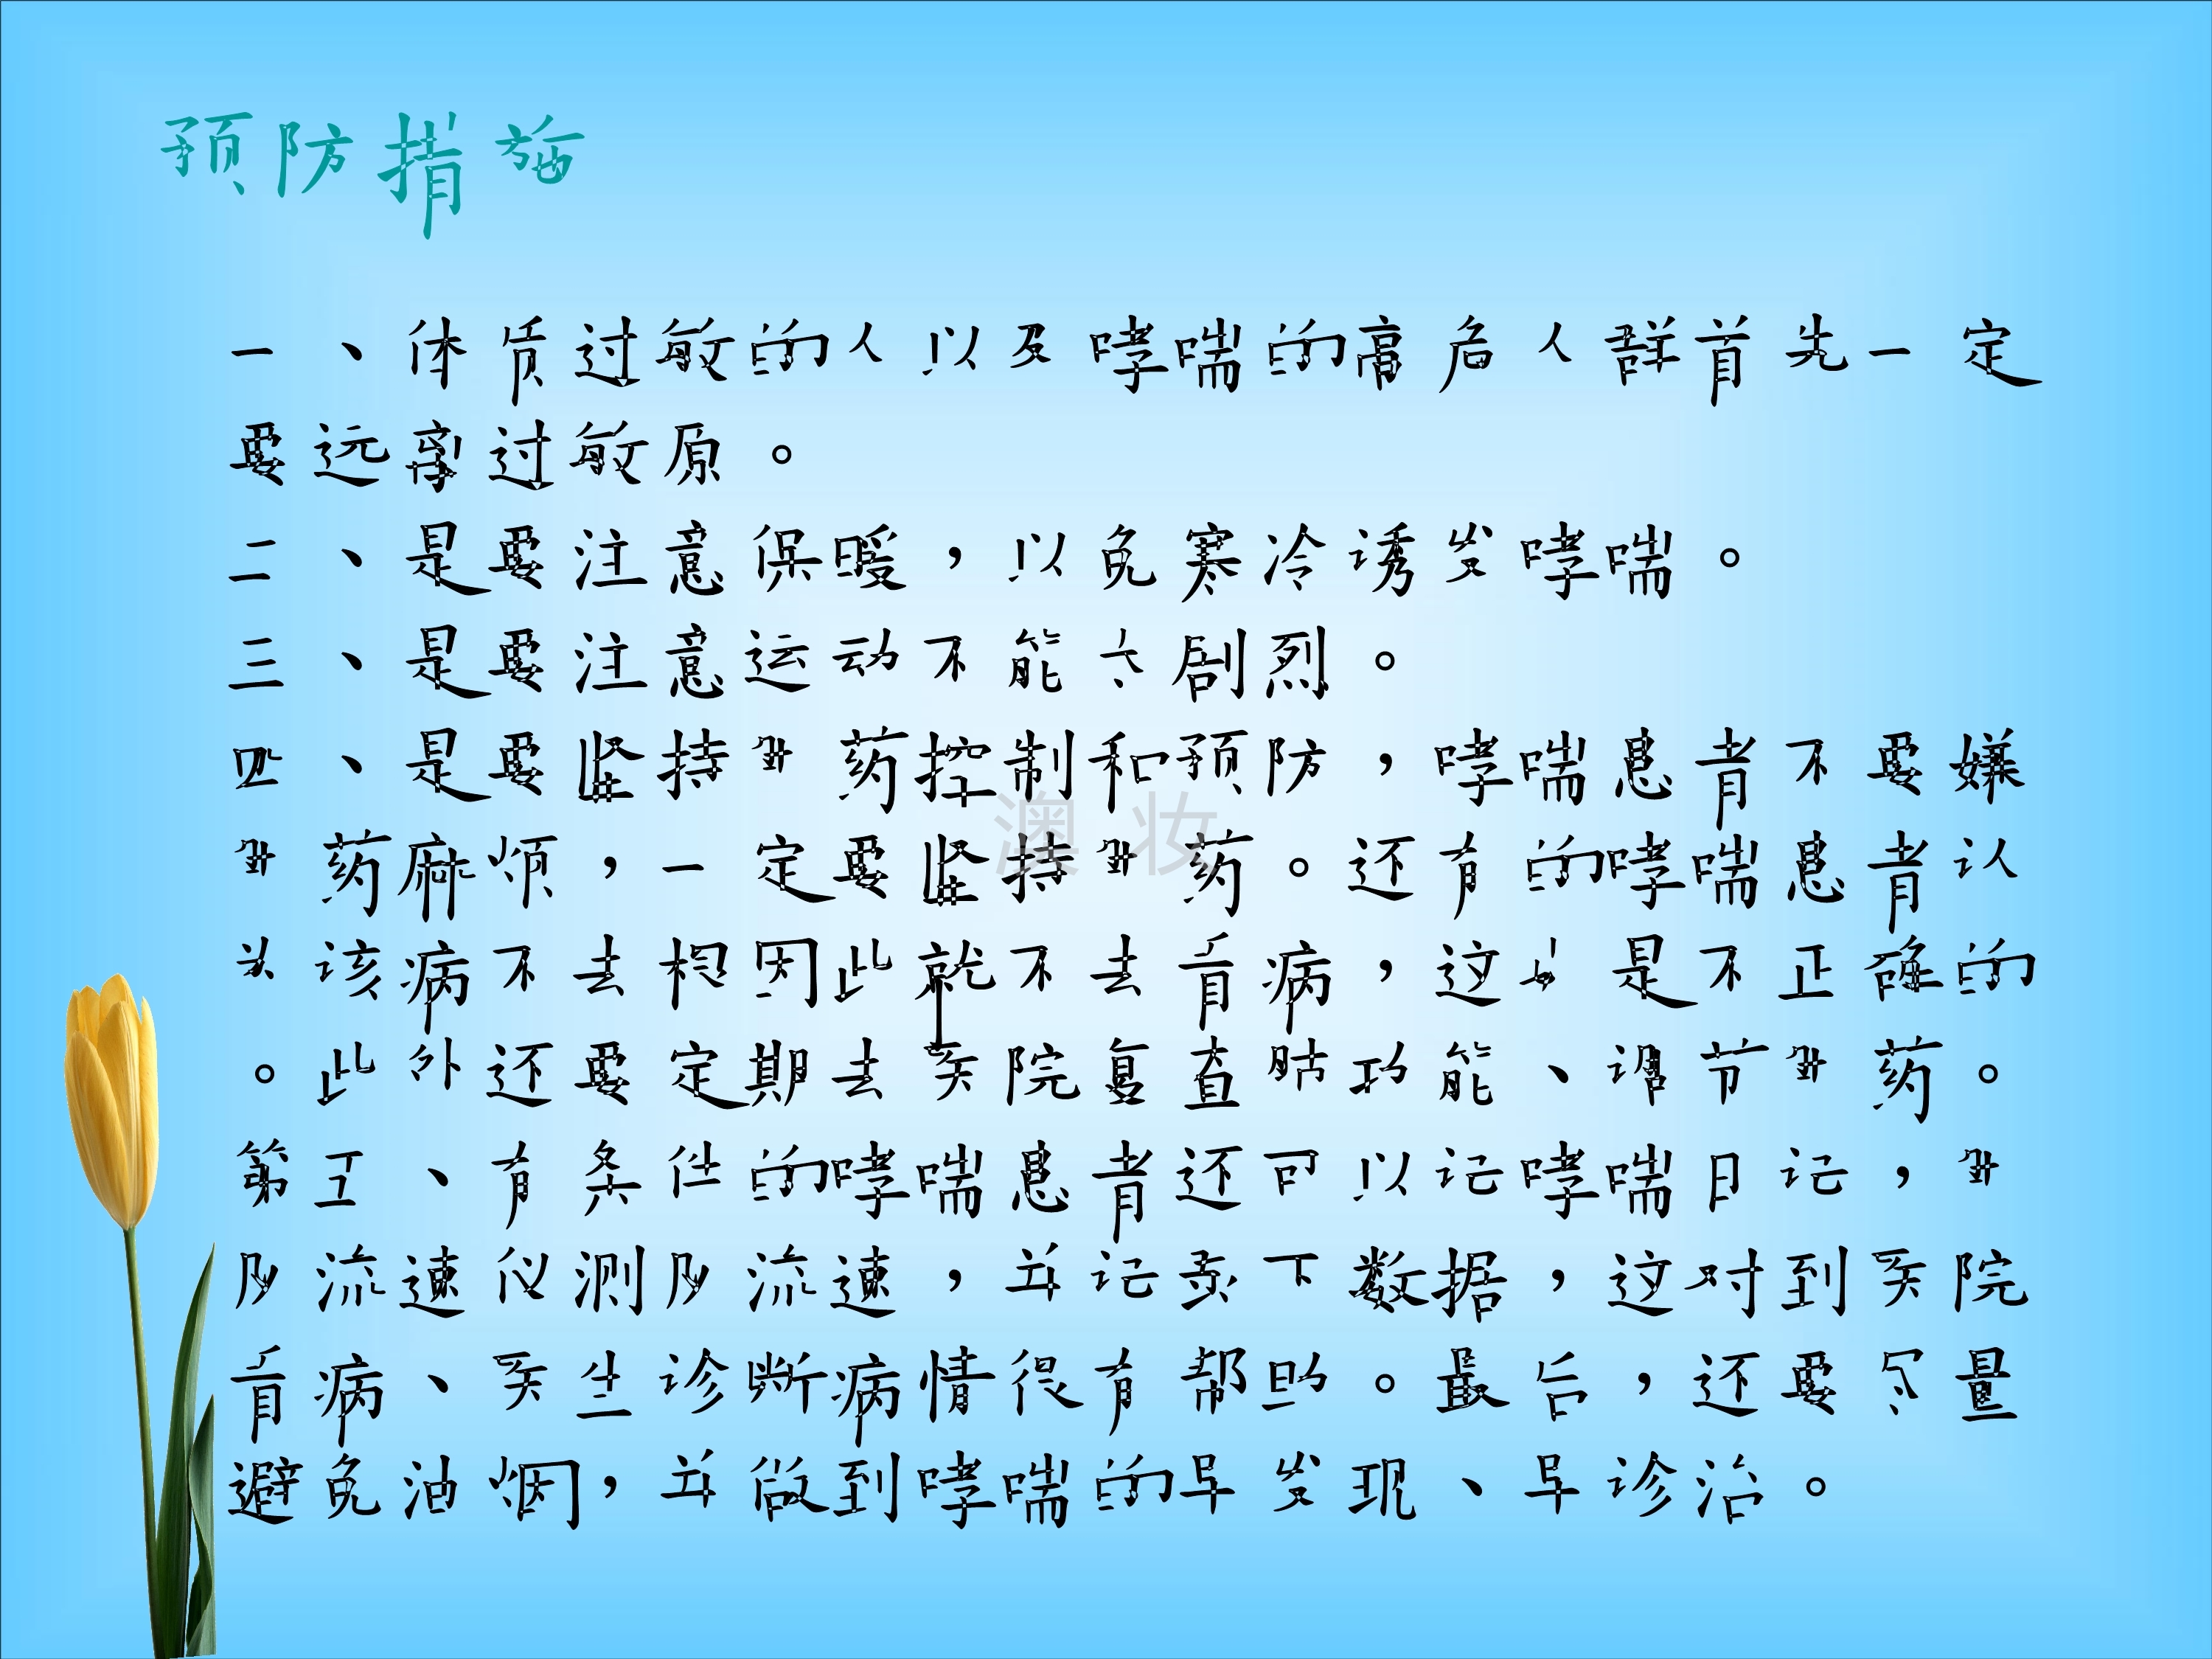 预防措施
一、体质过敏的人以及哮喘的高危人群首先一定
要远离过敏原。
二、是要注意保暖，以免寒冷诱发哮喘。
三、是要注意运动不能太剧烈。
四、是要坚持用药控制和预防，哮喘患者不要嫌
用药麻烦，一定要坚持用药。还有的哮喘患者认
为该病不去根因此就不去看病，这也是不正确的
。此外还要定期去医院复查肺功能、调节用药。
第五、有条件的哮喘患者还可以记哮喘日记，用
峰流速仪测峰流速，并记录下数据，这对到医院
看病、医生诊断病情很有帮助。最后，还要尽量
避免油烟，并做到哮喘的早发现、早诊治。
澳妆